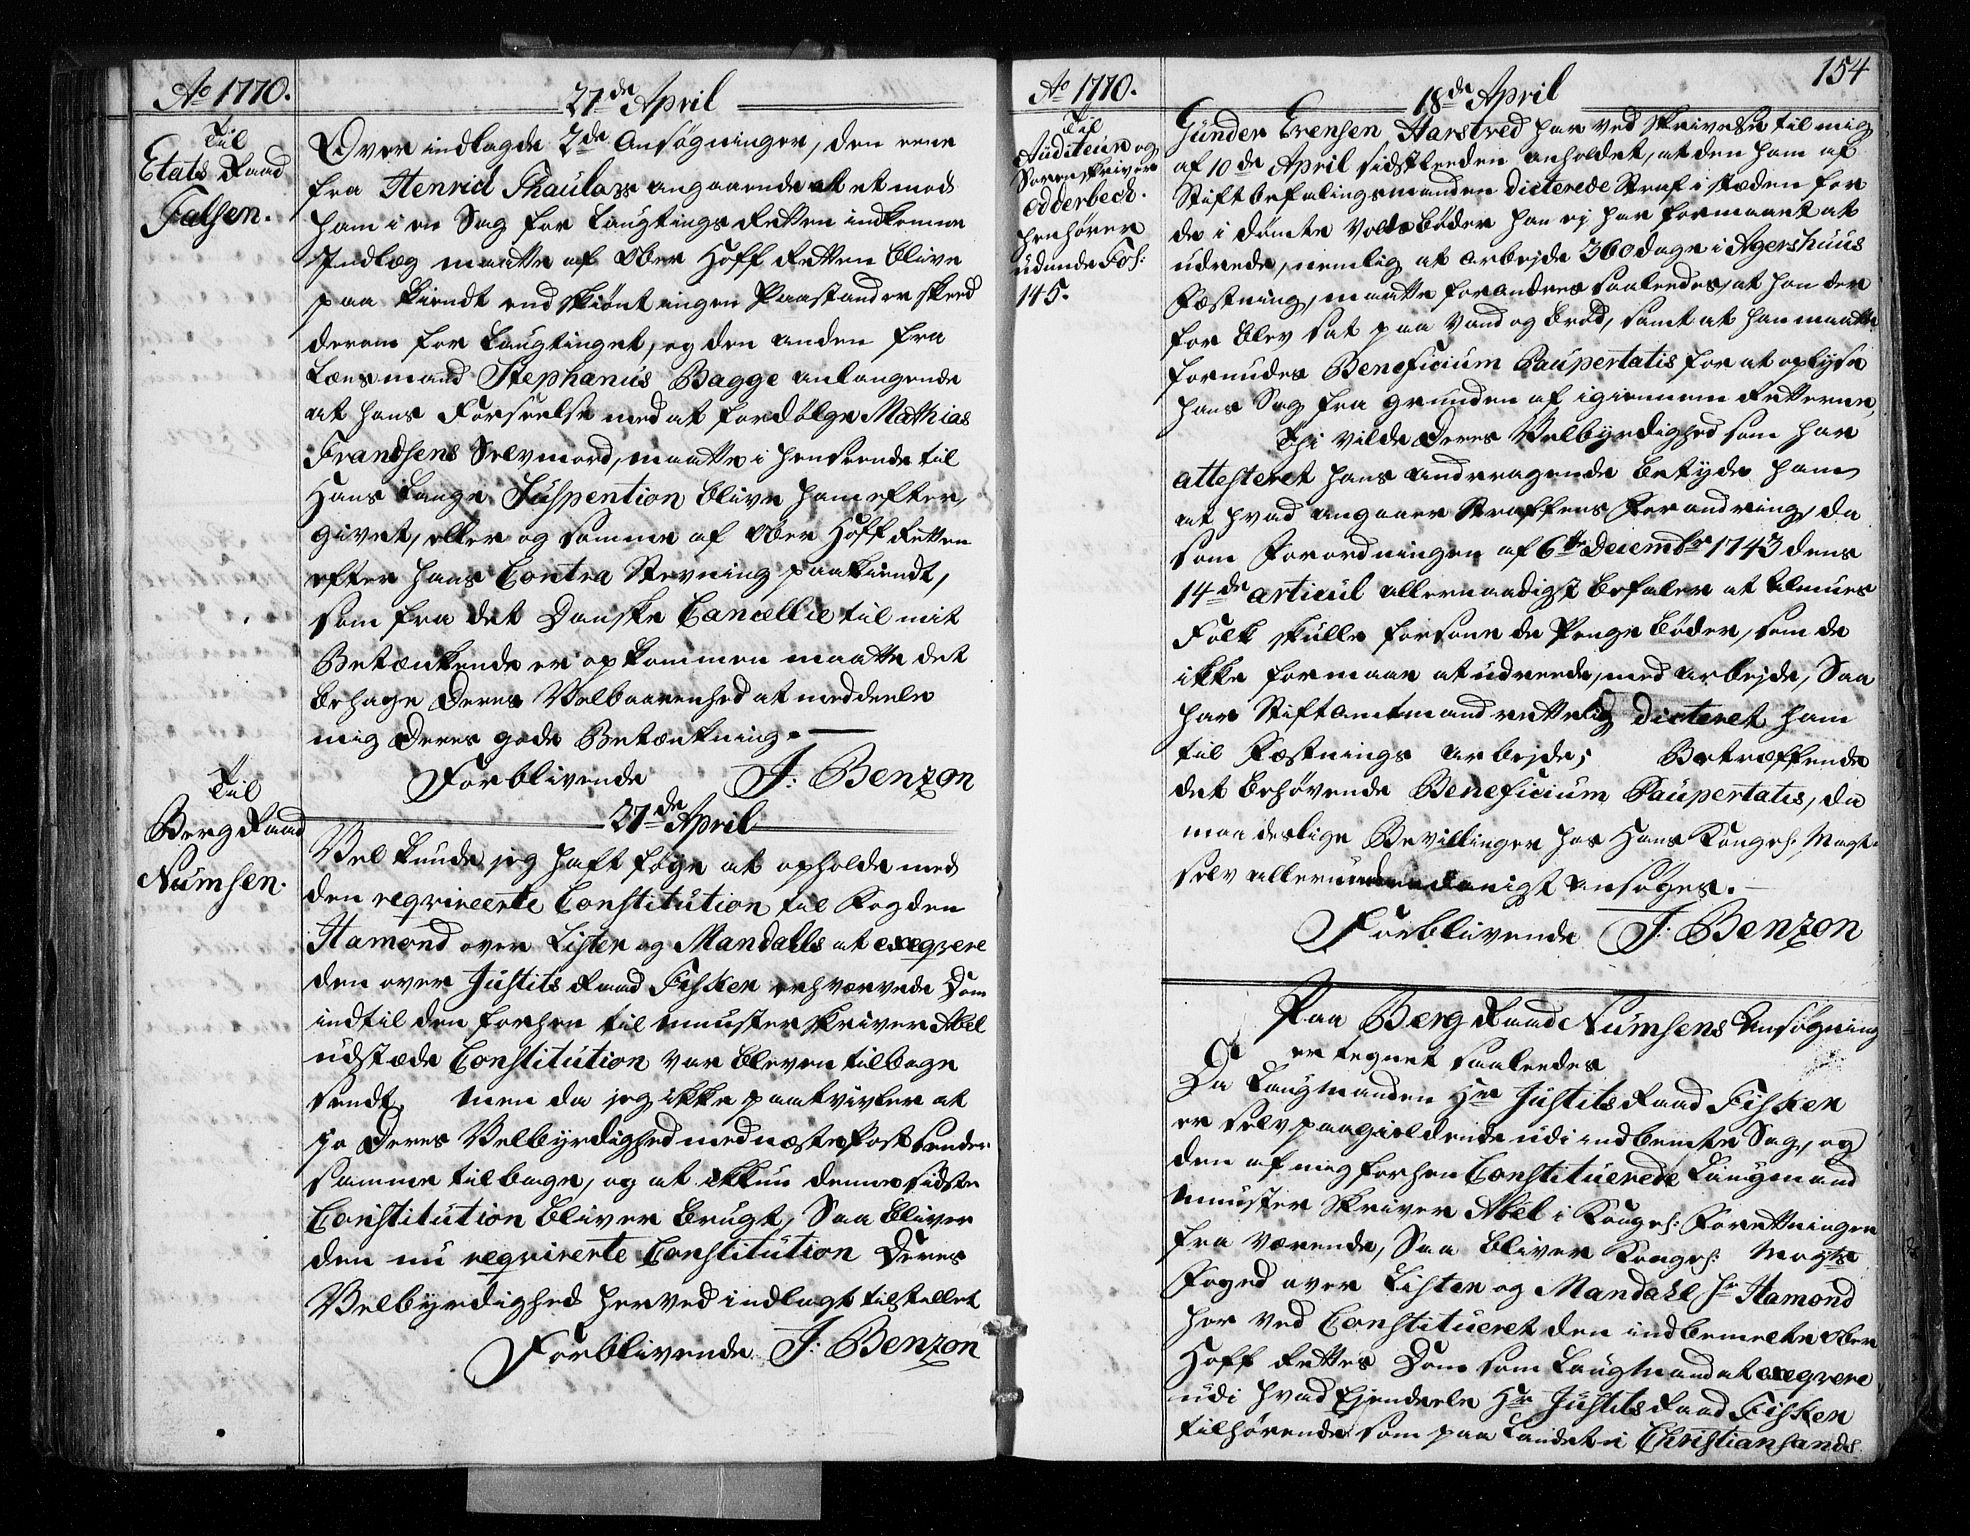 Ao 1770.
27de April
Til
Etats Raad
Falsen.
Over indlagde 2de Ansøgninger, den eene
fra Henrich Thaulow angaaende at et mod
ham i en Sag for Laugtings Retten indkomne
Indlæg maatte af Ober Hoff Retten blive
paa kiendt endskiønt ingen Paastand er skeed
derom for Laugtinget, og den anden fra
Lænsmand Stephanus Bagge anlangende
at hans Forseelse med at fordølge Mathias
Frandsens Selvmord, maatte i henseende til
Hans lange Suspention blive ham efter
givet, eller og samme af Ober Hoff Retten
efter hans Contra Stevning paakiendt,
som fra det Danske Cancellie til mit
Betænkende er opkommen maatte det
behage Deres Velbaarenhed at meddeele
mig Deres gode Betænkning.
Forblivende J: Benzon
27de April
Til
Berg Raad
Numsen.
Vel kunde jeg haft føye at opholde med
den reqvireerte Constitution til Fogden
Hamond over Lister og Mandahls at exeqvere
den over Justits Raad Fisker erhværvede Dom
indtil den forhen til Munster skriver Abel
udstæde Constitution var bleven tilbage
sendt, Men da jeg ikke paatvivler at
jo Deres Velbyrdighed med næste Post sender
samme tilbage, og at ikkun denne sidste
Constitution bliver brugt, Saa bliver
den nu reqvirerte Constitution Deres
Velbyrdighed herved indlagt tilstillet
Forblivende J: Benzon
154
Ao 1770.
18de April
Til
Auditeur og
Sorenskriver
Odderbech.
henhører
udunde Fol:
145.
Gunder Erensen Harstved har ved Skrivelse til mig
af 10de April sidstleeden anholdet, at den ham af
Stiftbefalingsmanden dicterede Straf i stæden for
de i dømte Volds bøder han ej har formaaet at
udrede, nemlig at arbejde 360 dage i Agershuus
Fæstning, maatte forandres saaleedes, at han der
for blev sat paa Vand og brød, samt at han maatte
forundes Beneficium Paupertatis for at oplyse
hans Sag fra grunden af igiennem Retterne,
Thi vilde Deres Velbyrdighed som har
attesteret hans andragende betyde ham
at hvad angaaer Straffens Forandring, da
som Forordningen af 6te Decembr 1743 dens
14de articul allernaadigst befaler at Almues
Folk skulle forsone de Penge bøder, som de
ikke formaar at udreede, med arbejde, Saa
har Stiftamtmand rettelig dicteret ham
til Fæstnings arbejde; Betræffende
det behøvende Beneficium Paupertatis, da
maa deslige Bevillinger hos Hans Kongel: Mayt.
selv allerunderdanigst ansøges.
Forblivende J: Benzon
Paa Berg Raad Numsens Ansøgning
er tegnet saaleedes
Da Laugmanden Hr Justits Raad Fisker
er selv paagieldende udi indbemte Sag, og
den af mig forhen Constituerede Laugmand
Munster Skriver Abel i Kongel: Forretninger
fra værende, Saa bliver Kongel: Mayts
Foged over Lister og Mandahl Hr Hamond
her ved Constitueret den indbemeldte Ober
Hoff Rettes Dom som Laugmand at exeqvere
udi hvad Ejendeele Hr Justits Raad Fisker
tilhørende som paa Landet i Christiansands